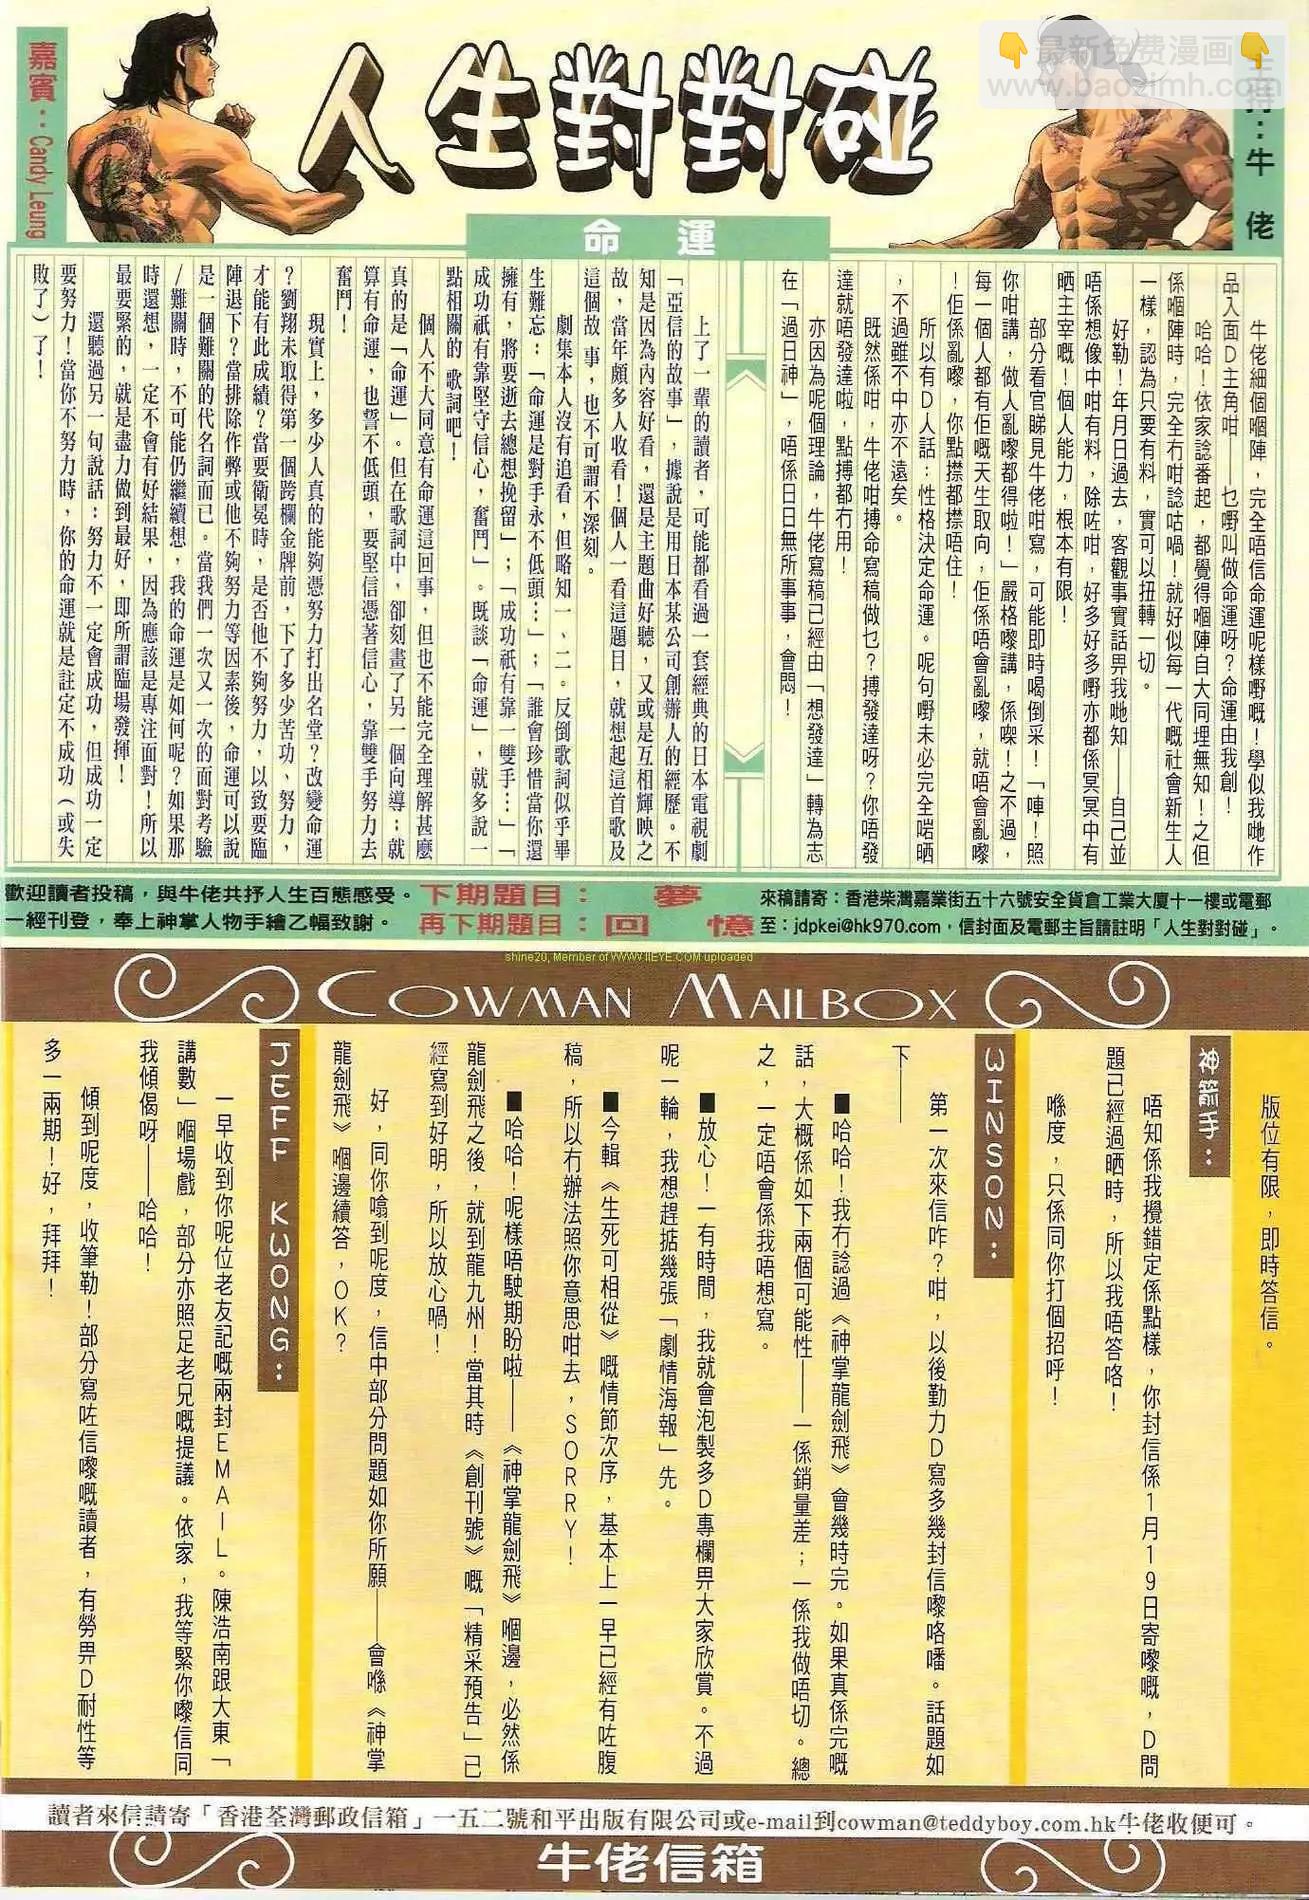 嘉賓：Candy Leung
人生對對碰
主持：牛佬
最新免费漫画
www.baozimh.com
命運
牛佬細個嗰陣，完全唔信命運呢樣嘢嘅！學似我哋作
品入面D主角咁——乜嘢叫做命運呀？命運由我創！
哈哈！依家諗番起，都覺得嗰陣自大同埋無知！之但
係嗰陣時，完全冇咁諗咕喎！就好似每一代嘅社會新生人
一樣，認為只要有料，實可以扭轉一切。
好勒！年月日過去，客觀事實話畀我哋知——自己並
唔係想像中咁有料，除咗咁，好多好多嘢亦都係冥冥中有
晒主宰嘅！個人能力，根本有限！
部分看官睇見牛佬咁寫，可能即時喝倒采！「唓！照
你咁講，做人亂嚟都得啦！」嚴格嚟講，係㗎！之不過，
每一個人都有佢嘅天生取向，佢係唔會亂嚟，就唔會亂嚟
！佢係亂嚟，你點㩒都㩒唔住！
所以有D人話：性格決定命運。呢句嘢未必完全啱晒
，不過雖不中亦不遠矣。
既然係咁，牛佬咁搏命寫稿做乜？搏發達呀？你唔發
達就唔發達啦，點搏都冇用！
亦因為呢個理論，牛佬寫稿已經由「想發達」轉為志
在「過日神」，唔係日日無所事事，會悶！
上了一輩的讀者，可能都看過一套經典的日本電視劇
「亞信的故事」，據說是用日本某公司創辦人的經歷。不
知是因為內容好看，還是主題曲好聽，又或是互相輝映之
故，當年頗多人收看！個人一看這題目，就想起這首歌及
這個故 事，也不可謂不深刻。
劇集本人沒有追看，但略知一、二。反倒歌詞似乎畢
生難忘：「命運是對手永不低頭…」；「誰會珍惜當你還
擁有，將要逝去總想挽留」；「成功祇有靠一雙手…」「
成功祇有靠堅守信心，奮鬥」。既談「命運」，就多說一
點相關的 歌詞吧！
個人不大同意有命運這回事，但也不能完全理解甚麼
真的是「命運」。但在歌詞中，卻刻畫了另一個向導：就
算有命運，也誓不低頭，要堅信憑著信心，靠雙手努力去
奮鬥！
現實上，多少人真的能夠憑努力打出名堂？改變命運
？劉翔未取得第一個跨欄金牌前，下了多少苦功、努力，
才能有此成績？當要衛冕時，是否他不夠努力，以致要臨
陣退下？當排除作弊或他不夠努力等因素後，命運可以說
是一個難關的代名詞而已。當我們一次又一次的面對考驗
/難關時，不可能仍繼續想，我的命運是如何呢？如果那
時還想，一定不會有好結果，因為應該是專注面對！所以
最要緊的，就是盡力做到最好，即所謂臨場發揮！
還聽過另一句說話：努力不一定會成功，但成功一定
要努力！當你不努力時，你的命運就是註定不成功（或失
敗了）了！
歡迎讀者投稿，與牛佬共抒人生百態感受。
一經刊登，奉上神掌人物手繪乙幅致謝。
下期題目： 夢
再下期題目：回 憶
來稿請寄：香港柴灣嘉業街五十六號安全貨倉工業大廈十一樓或電郵
至：jdpkei@hk970.com，信封面及電郵主旨請註明「人生對對碰」。
shine20, Member of WWW.IIEYE.COM uploaded
COWMAN MAILBOX
版位有限，即時答信。
神箭手：
唔知係我攪錯定係點樣，你封信係1月19日寄嚟嘅，D問
題已經過晒時，所以我唔答咯！
喺度，只係同你打個招呼！
WINSON：
第一次來信咋？咁，以後勤力D寫多幾封信嚟咯噃。話題如
下——
■哈哈！我冇諗過《神掌龍劍飛》會幾時完。如果真係完嘅
話，大概係如下兩個可能性——一係銷量差；一係我做唔切。總
之，一定唔會係我唔想寫。
■放心！一有時間，我就會泡製多D專欄畀大家欣賞。不過
呢一輪，我想趕掂幾張「劇情海報」先。
■今輯《生死可相從》嘅情節次序，基本上一早已經有咗腹
稿，所以冇辦法照你意思咁去，SORRY！
■哈哈！呢樣唔駛期盼啦——《神掌龍劍飛》嗰邊，必然係
龍劍飛之後，就到龍九州！當其時《創刊號》嘅「精采預告」已
經寫到好明，所以放心喎！
好，同你噏到呢度，信中部分問題如你所願——會喺《神掌
龍劍飛》嗰邊續答，OK？
JEFF KWONG：
一早收到你呢位老友記嘅兩封EMAIL。陳浩南跟大東「
講數」嗰場戲，部分亦照足老兄嘅提議。依家，我等緊你嚟信同
我傾偈呀——哈哈！
傾到呢度，收筆勒！部分寫咗信嚟嘅讀者，有勞畀D耐性等
多一兩期！好，拜拜！
讀者來信請寄「香港荃灣郵政信箱」一五二號和平出版有限公司或e-mail到cowman@teddyboy.com.hk牛佬收便可。
牛佬信箱